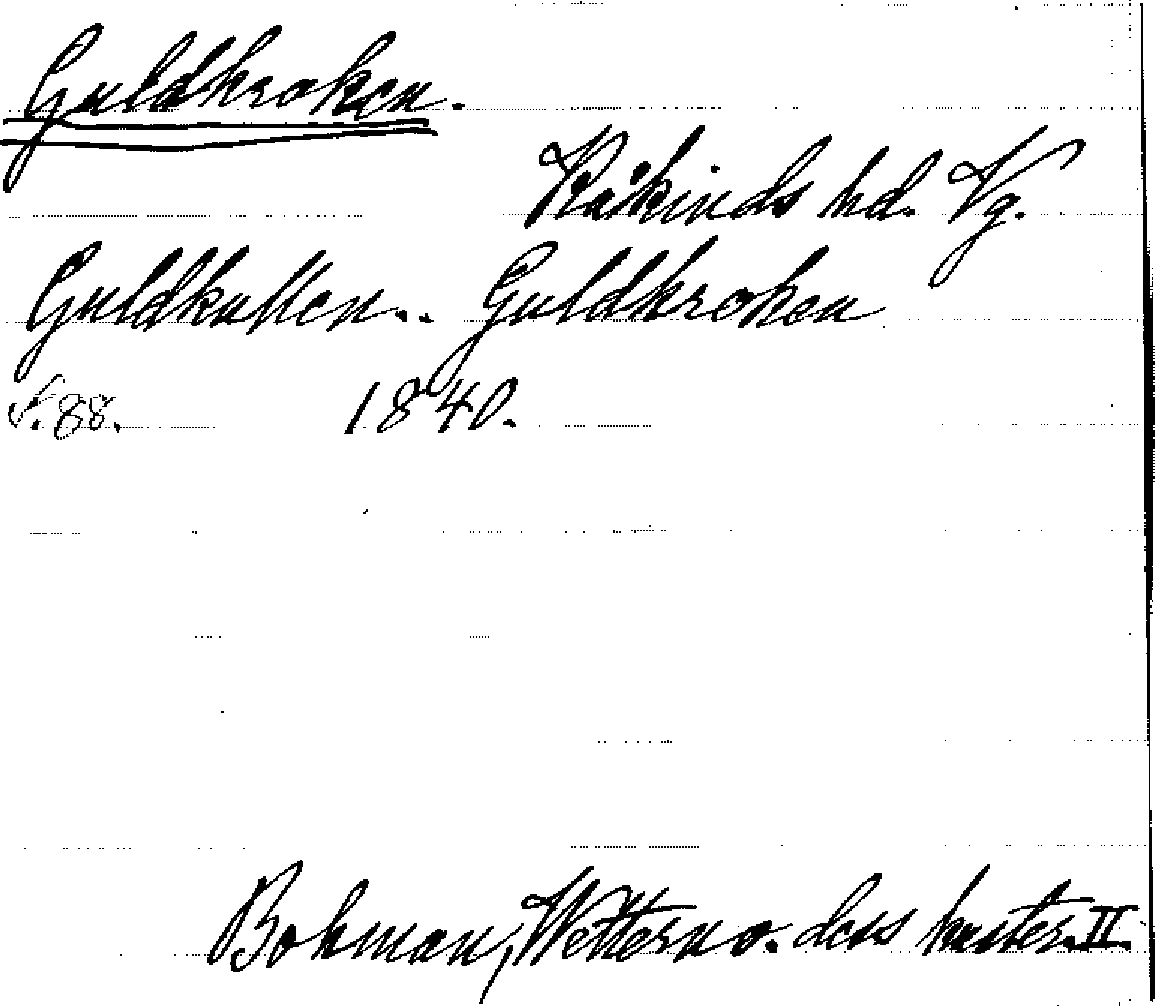 Guldkroken.
Kåkinds hd. Vg.
Guldkullen.. Guldkroken
s. 88. 1840.
Bohman, Wettern o. dess kuster. II.